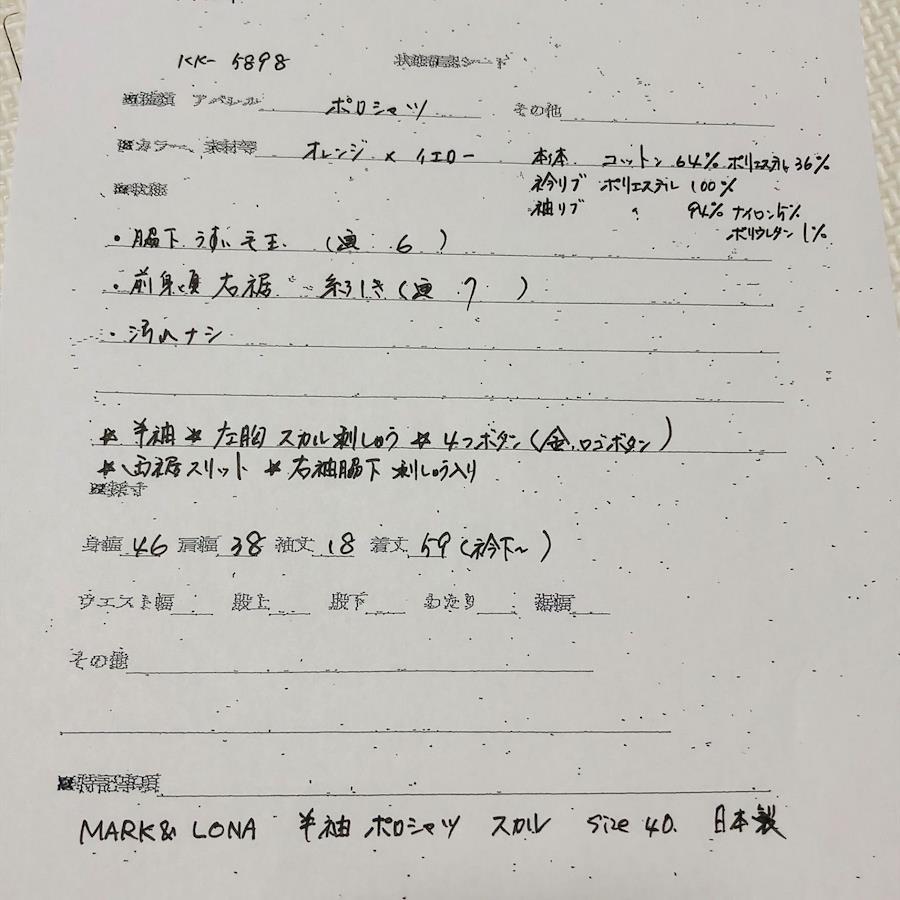 KK- 5898 状態確認シート
■種類 アパレル ポロシャツ その他
■カラー、素材等 オレンジ × イエロー 本体 コットン 64% ポリエステル 36%
衿リブ ポリエステル 100%
■状態 袖リブ 〃 94% ナイロン5%
ポリウレタン 1%
・脇下 うすい毛玉 (画 6 )
・前身頃 右裾 糸引き (画 7 )
・汚れナシ
* 半袖 * 左胸 スカル刺しゅう * 4つボタン(金、ロゴボタン)
* 両裾スリット * 右袖脇下 刺しゅう入り
■採寸
身幅 46 肩幅 38 袖丈 18 着丈 59 (衿下〜)
ウエスト幅 股上 股下 わたり 裾幅
その他
■特記事項
MARK & LONA 半袖 ポロシャツ スカル size 40. 日本製